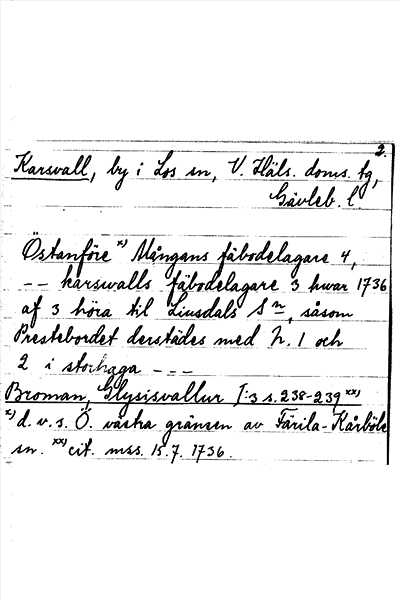 2.
Karsvall, by i Los sn, V. Häls. doms. tg,
Gävleb. l.
Östanföre x) Mångans fäbodelagare 4,
-- karswalls fäbodelagare 3 hwar 1736
af 3 höra til Liusdals Sn, såsom
Prestebordet derstädes med N. 1 och
2 i storhaga ---
Broman, Glysisvallur I:3 s. 238-239 xx)
x) d.v.s. Ö. västra gränsen av Färila-Kårböle
sn. xx) cit. mss. 15.7. 1736.